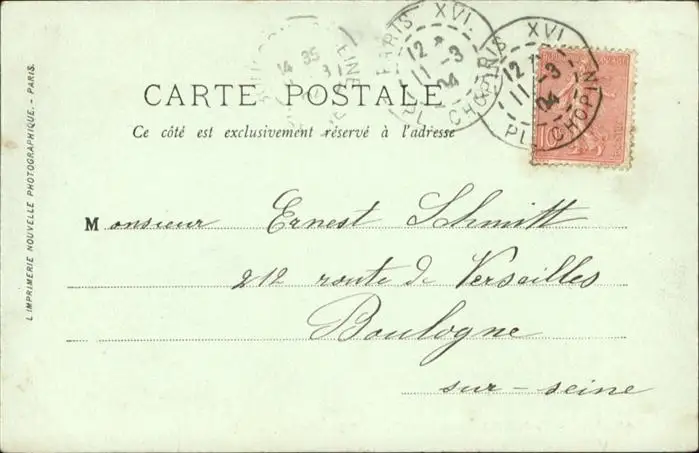 PARIS XVI
12 * 11 -3 04
PL. CHOPIN
PARIS XVI
12 * 11 -3 04
PL. CHOPIN
14 35
SEINE
10
CARTE POSTALE
Ce côté est exclusivement réservé à l'adresse
Monsieur Ernest Schmitt
212 route de Versailles
Boulogne
sur-seine
L'IMPRIMERIE NOUVELLE PHOTOGRAPHIQUE. - PARIS.